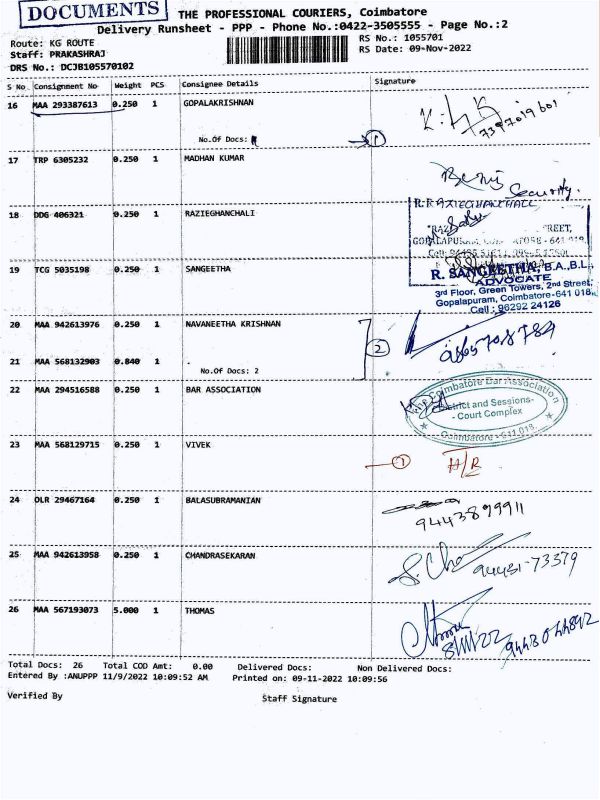 DOCUMENTS
THE PROFESSIONAL COURIERS, Coimbatore
Delivery Runsheet - PPP - Phone No.:0422-3505555 - Page No.:2
Route: KG ROUTE
RS No.: 1055701
Staff: PRAKASHRAJ
RS Date: 09-Nov-2022
DRS No.: DCJB105570102
S No Consignment No Weight PCS Consignee Details Signature
16 MAA 293387613 0.250 1 GOPALAKRISHNAN
7397019601
No.Of Docs: 1
17 TRP 6305232 0.250 1 MADHAN KUMAR
Security.
R.RAZIEGHANCHALI,
18 DDG 406321 0.250 1 RAZIEGHANCHALI
19 TCG 5035198 0.250 1 SANGEETHA
R. SANGEETHA, B.A.,B.L.,
ADVOCATE
3rd Floor, Green Towers, 2nd Street,
Gopalapuram, Coimbatore-641 018.
Cell : 96292 24126
20 MAA 942613976 0.250 1 NAVANEETHA KRISHNAN
2
21 MAA 568132903 0.840 1 .
No.Of Docs: 2
22 MAA 294516588 0.250 1 BAR ASSOCIATION
The Coimbatore Bar Association
District and Sessions-
- Court Complex
Coimbatore - 641 018.
23 MAA 568129715 0.250 1 VIVEK
1
24 OLR 29467164 0.250 1 BALASUBRAMANIAN
9443899911
25 MAA 942613958 0.250 1 CHANDRASEKARAN
94431-73379
26 MAA 567193073 5.000 1 THOMAS
9443044892
Total Docs: 26 Total COD Amt: 0.00 Delivered Docs: Non Delivered Docs:
Entered By :ANUPPP 11/9/2022 10:09:52 AM Printed on: 09-11-2022 10:09:56
Verified By Staff Signature